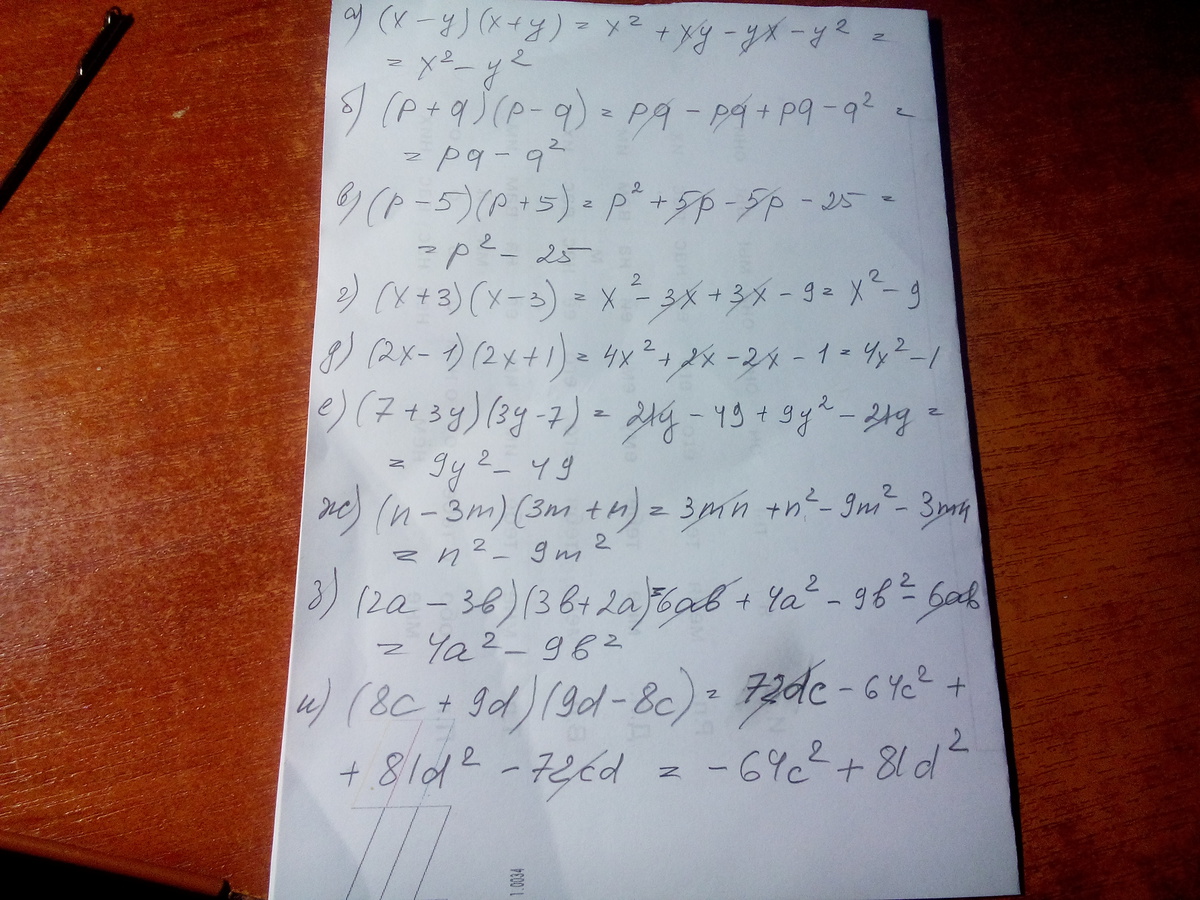 а) (x - y)(x + y) = x² + xy - yx - y² =
= x² - y²
б) (p + q)(p - q) = pq - pq + pq - q² =
= pq - q²
в) (p - 5)(p + 5) = p² + 5p - 5p - 25 =
= p² - 25
г) (x + 3)(x - 3) = x² - 3x + 3x - 9 = x² - 9
д) (2x - 1)(2x + 1) = 4x² + 2x - 2x - 1 = 4x² - 1
е) (7 + 3y)(3y - 7) = 21y - 49 + 9y² - 21y =
= 9y² - 49
ж) (n - 3m)(3m + n) = 3mn + n² - 9m² - 3mn
= n² - 9m²
з) (2a - 3b)(3b + 2a) = 6ab + 4a² - 9b² - 6ab
= 4a² - 9b²
и) (8c + 9d)(9d - 8c) = 72dc - 64c² +
+ 81d² - 72cd = -64c² + 81d²
1.0034